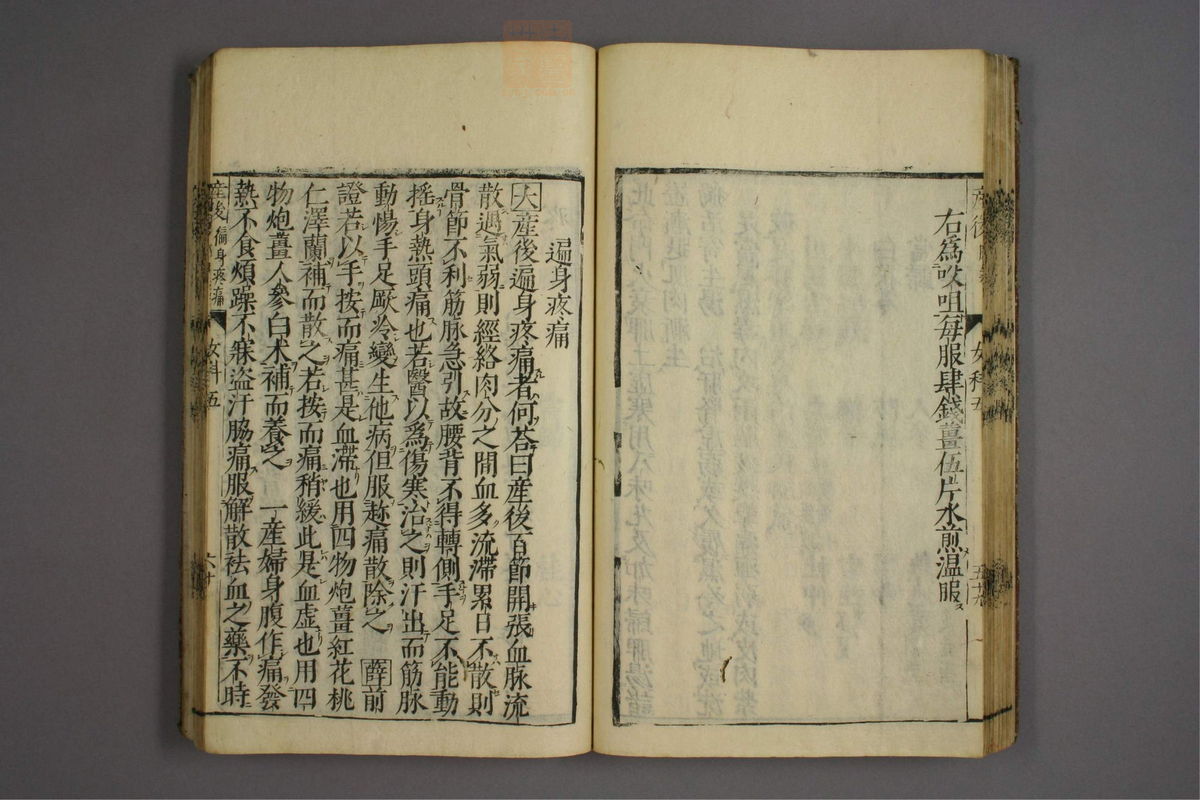 右為㕮咀每服肆錢薑伍片水煎温服
女科五
遍身疼痛
大産後遍身疼痛者何荅曰産後百節開張血脉流
散遇氣弱則經絡肉分之間血多流滯累日不散則
骨節不利筋脉急引故腰背不得轉側手足不能動
摇身熱頭痛也若醫以為傷寒治之則汗出而筋脉
動惕手足厥冷變生他病但服趂痛散除之 薛前
證若以手按而痛甚是血滯也用四物炮薑紅花桃
仁澤蘭補而散之若按而痛稍緩此是血虛也用四
物炮薑人參白术補而養之 一産婦身腹作痛發
熱不食煩躁不寐盗汗脇痛服解散祛血之藥不時
産後 徧身疼痛 女科五 六十